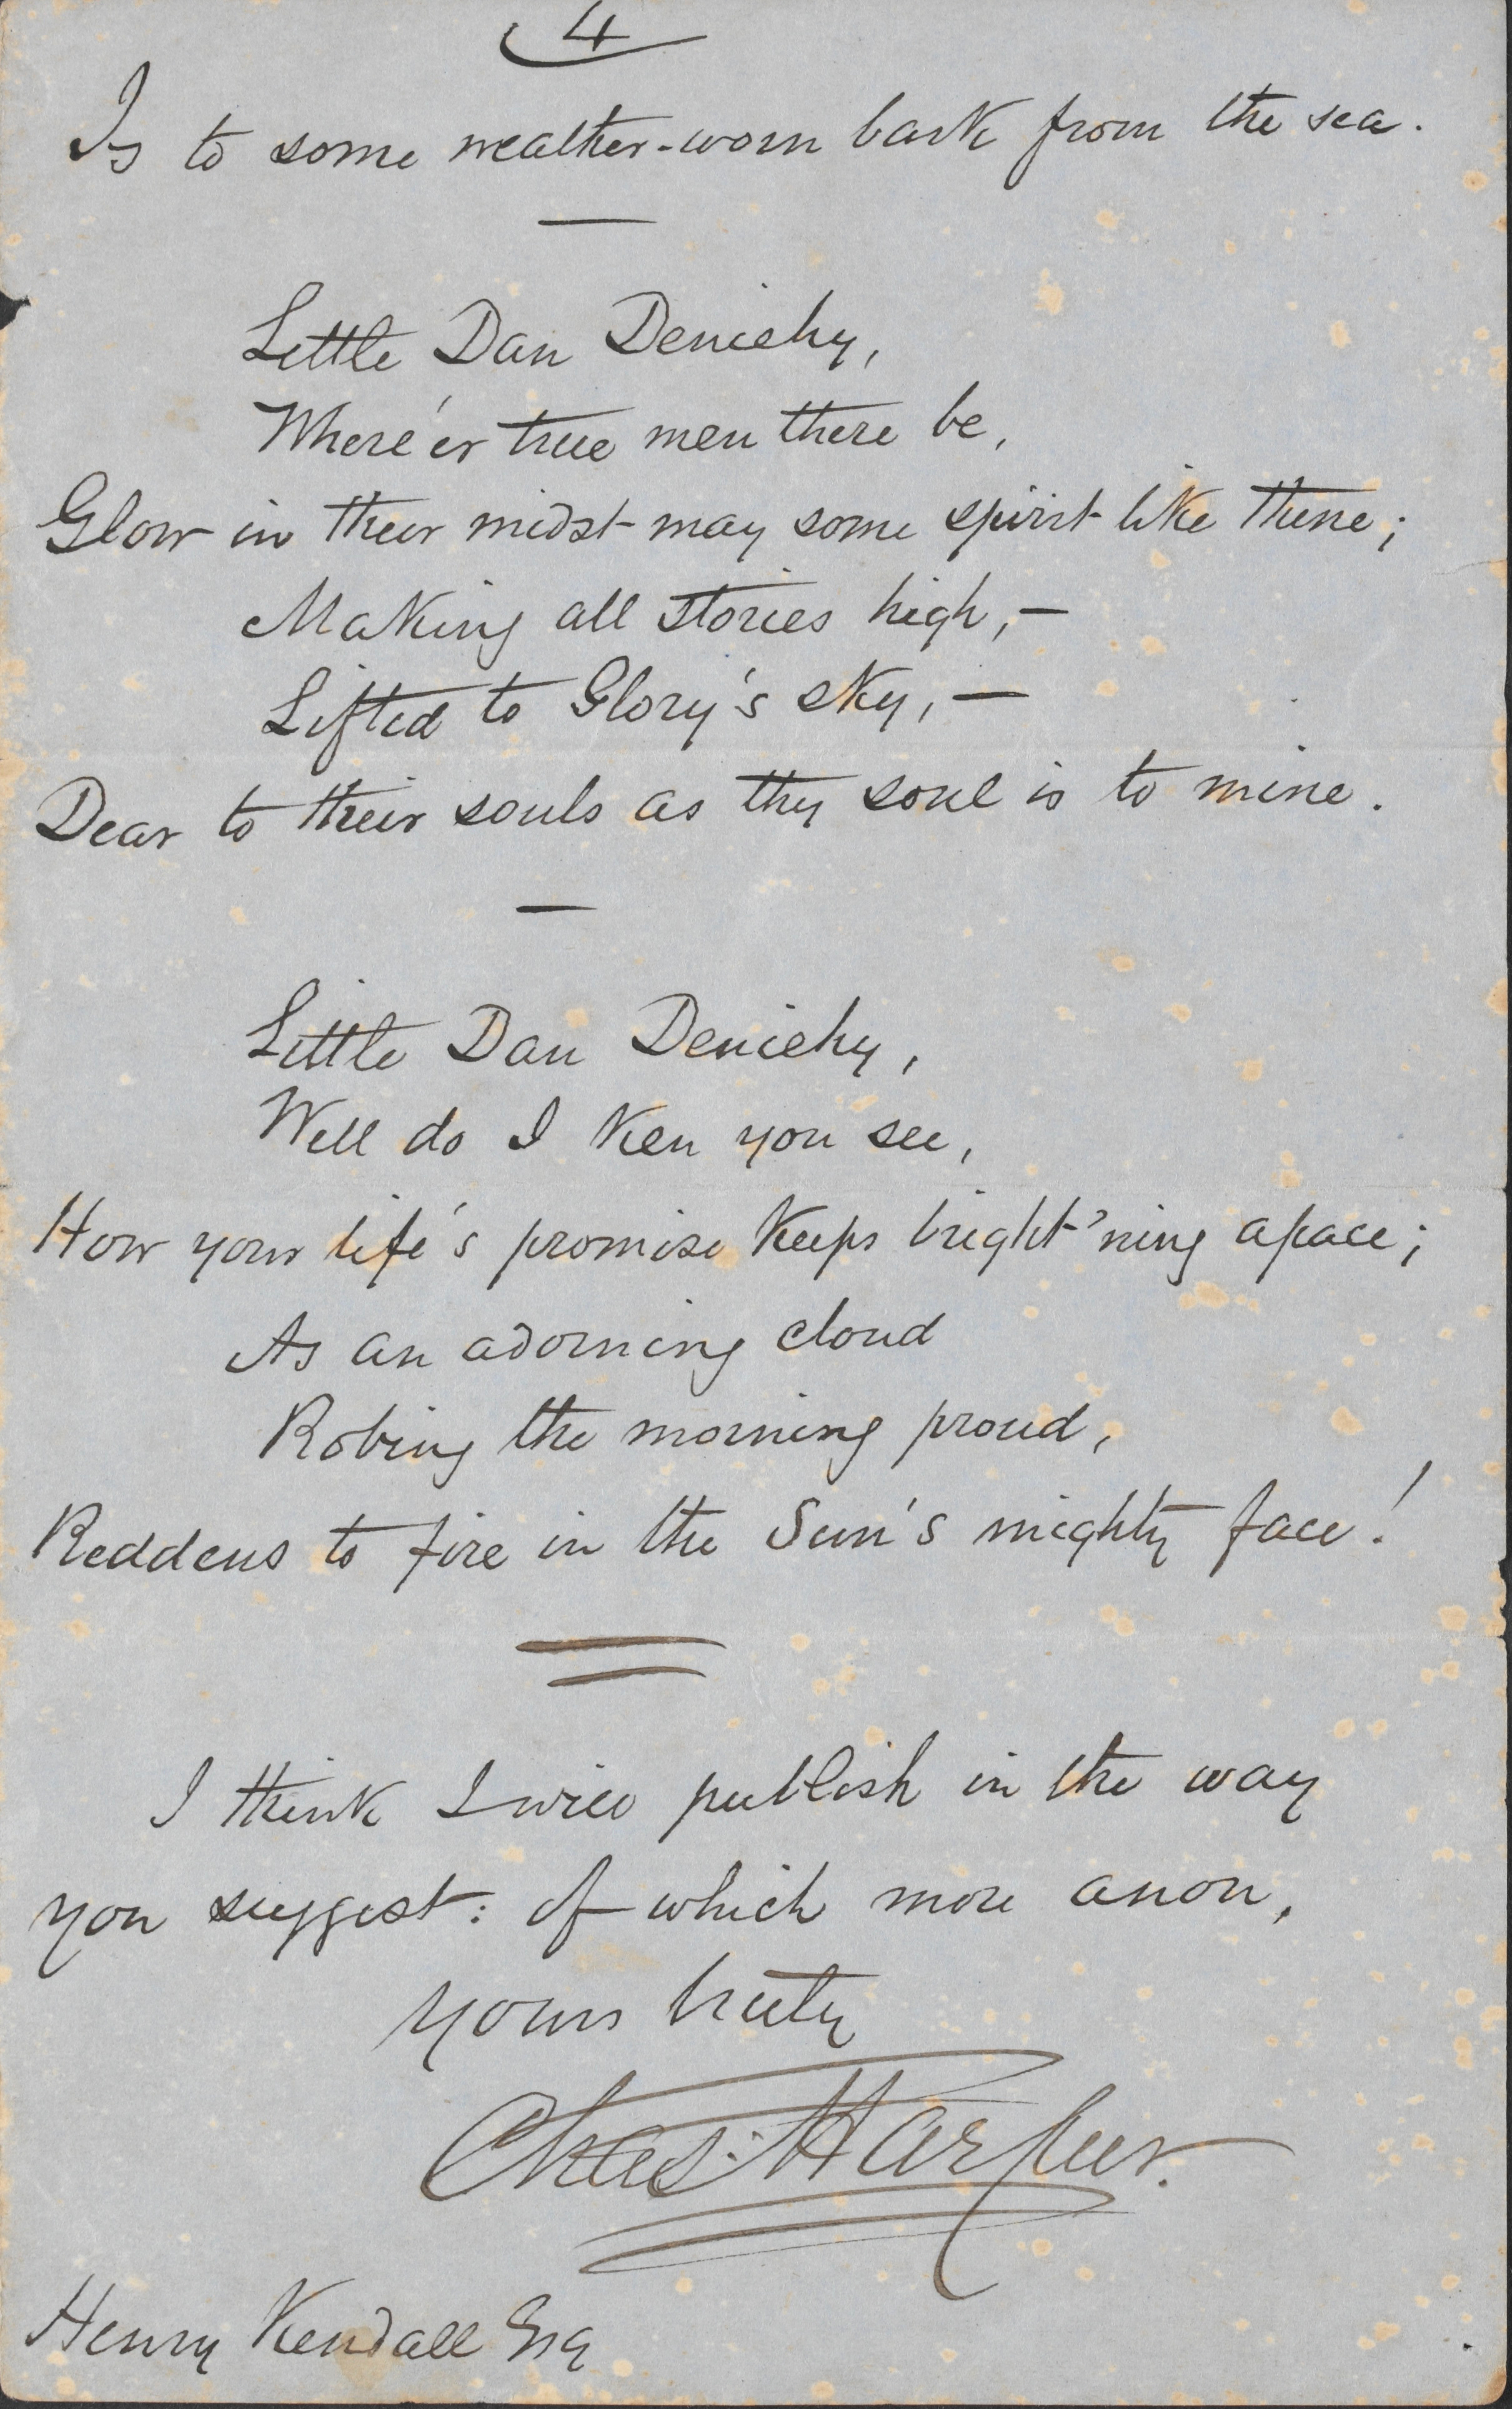 4
Is to some weather-worn bark from the sea.
Little Dan Deniehy,
Where'er true men there be,
Glow in their midst may some spirit like thine;
Making all stories high, —
Lifted to Glory's sky, —
Dear to their souls as thy soul is to mine.
Little Dan Deniehy,
Well do I ken you see,
How your life's promise keeps bright'ning apace;
As an adorning cloud
Robing the morning proud,
Reddens to fire in the Sun's mighty face!
I think I will publish in the way
you suggest: of which more anon,
yours truly
Chas. Harpur.
Henry Kendall Esq